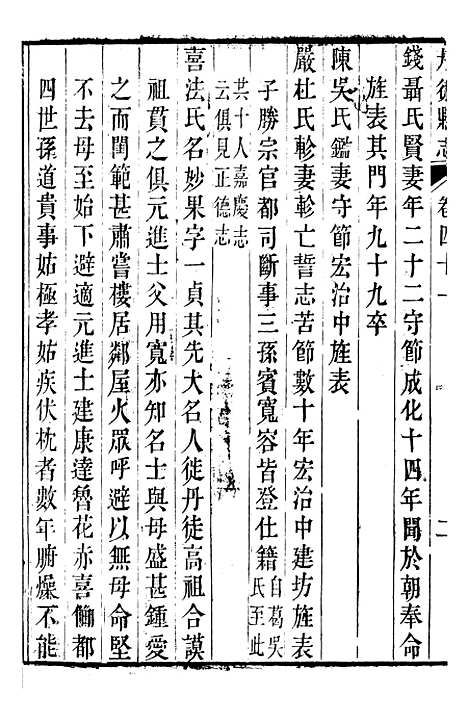 丹徒縣志 卷四十一 二
錢聶氏賢妻年二十二守節成化十四年聞於朝奉命
旌表其門年九十九卒
陳吳氏鑑妻守節宏治中旌表
嚴杜氏軫妻軫亡誓志苦節數十年宏治中建坊旌表
子勝宗官都司斷事三孫賓寬容皆登仕籍自葛吳氏至此
共十人嘉慶志云俱見正德志
喜法氏名妙果字一貞其先大名人徒丹徒高祖合謨
祖貫之俱元進士父用寬亦知名士與母盛甚鍾愛
之而閨範甚肅嘗樓居鄰屋火眾呼避以無母命堅
不去母至始下避適元進士建康達魯花赤喜僩都
四世孫道貴事姑極孝姑疾伏枕者數年腑燥不能